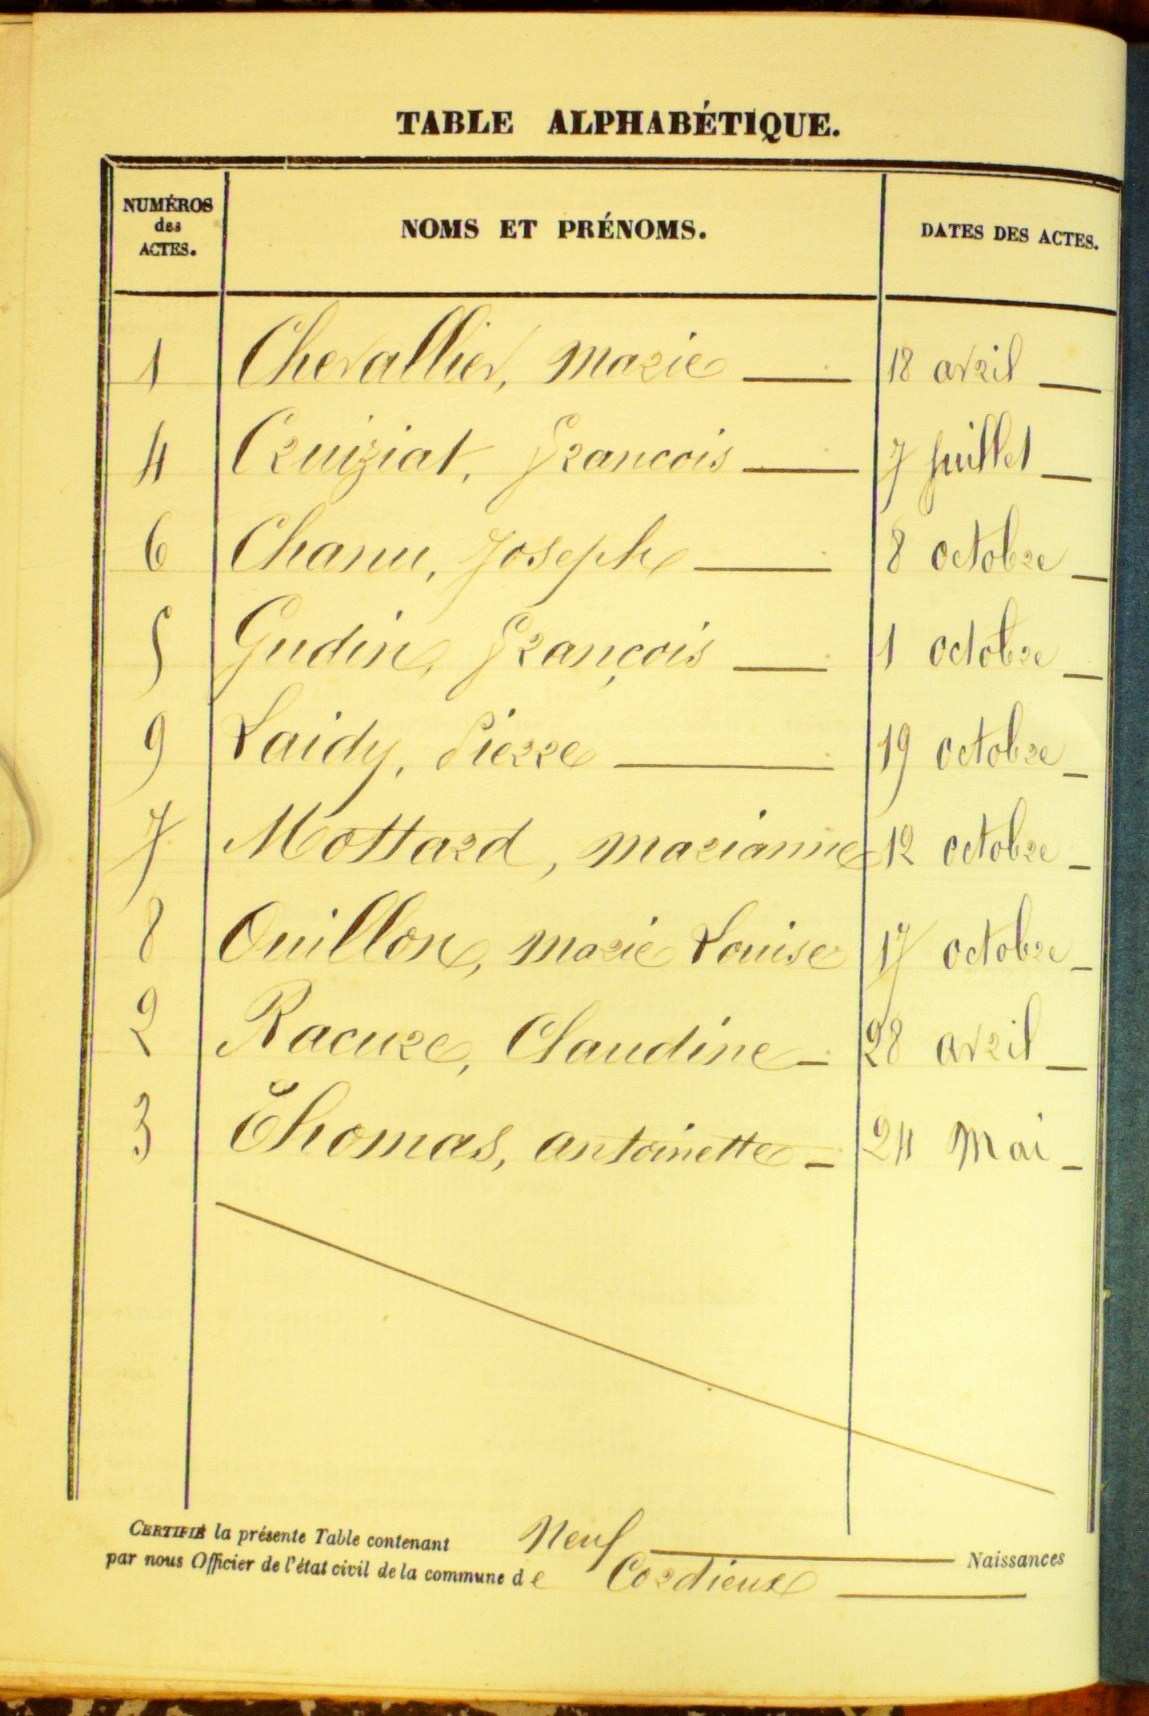 TABLE ALPHABÉTIQUE.
NUMÉROS des ACTES. NOMS ET PRÉNOMS. DATES DES ACTES.
1 Chevallier, Marie 18 avril
4 Cruiziat, François 7 Juillet
6 Chanu, Joseph 8 octobre
5 Gudin, François 1 octobre
9 Laidy, Pierre 19 octobre
7 Mottard, Marianne 12 octobre
8 Ouillon, Marie Louise 17 octobre
2 Racure, Claudine 28 avril
3 Thomas, Antoinette 24 Mai
CERTIFIÉ la présente Table contenant Neuf Naissances
par nous Officier de l'état civil de la commune de Cordieux